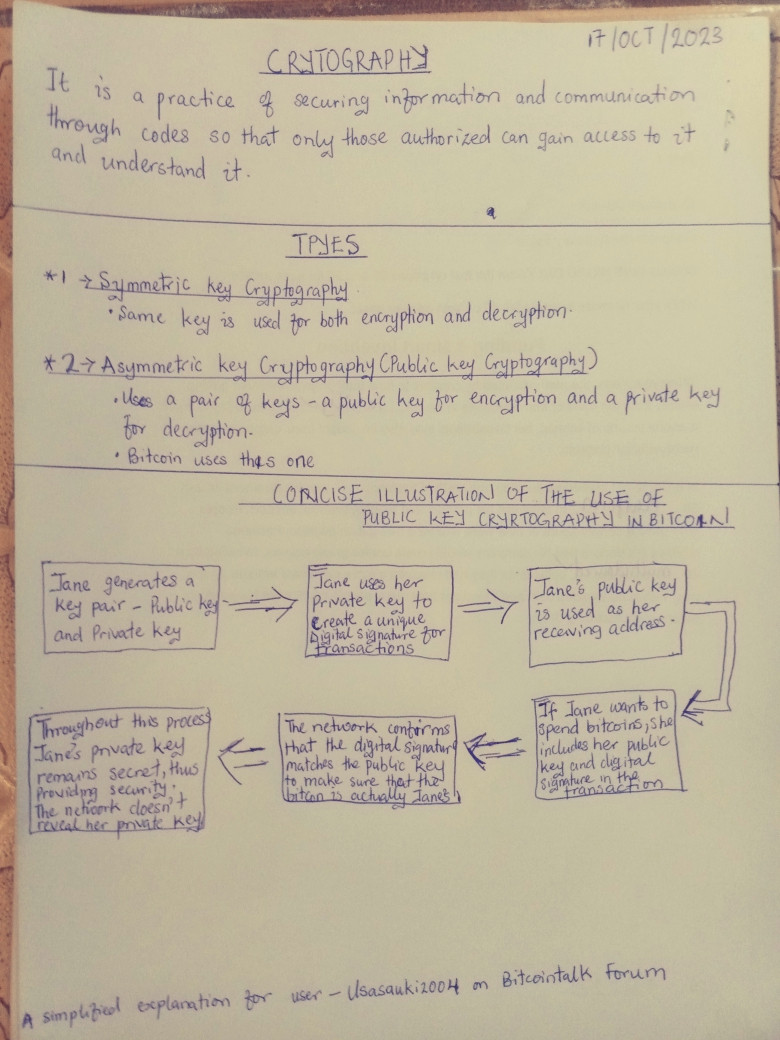 17/OCT/2023
CRYTOGRAPHY
It is a practice of securing information and communication
through codes so that only those authorized can gain access to it
and understand it.
TPYES
*1 → Symmetric key Cryptography.
• Same key is used for both encryption and decryption.
*2 → Asymmetric key Cryptography (Public key Cryptography)
• Uses a pair of keys - a public key for encryption and a private key
for decryption.
• Bitcoin uses this one
CONCISE ILLUSTRATION OF THE USE OF
PUBLIC KEY CRYRTOGRAPHY IN BITCOIN
Jane generates a
key pair - Public key
and Private key
Jane uses her
Private key to
create a unique
Digital signature for
transactions
Jane's public key
is used as her
receiving address.
If Jane wants to
spend bitcoins, she
includes her public
key and digital
signature in the
transaction
The network confirms
that the digital signature
matches the public key
to make sure that the
bitcoin is actually Jane's
Throughout this process
Jane's private key
remains secret, thus
Providing security.
The network doesn't
reveal her private key
A simplified explanation for user - Usasauki2004 on Bitcointalk Forum